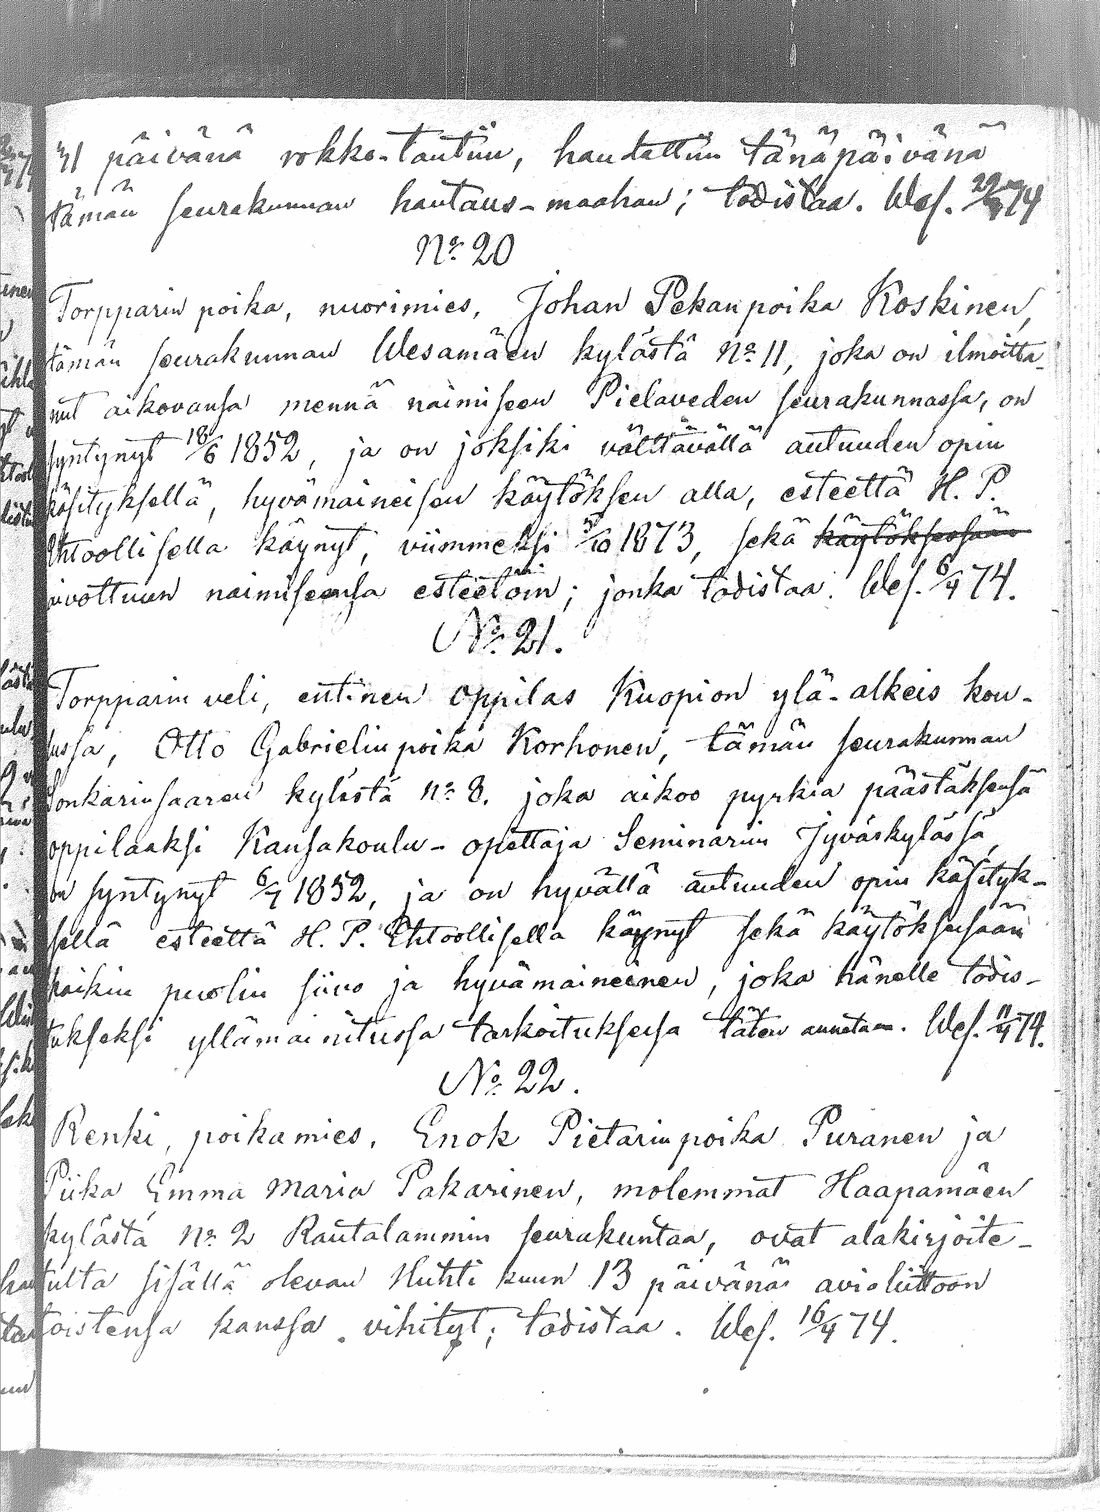 21 päivänä rokko-tautiin, haudattiin tänäpäivänä
tämän seurakunnan hautaus-maahan; todistaa. Wes. 29/3 74
No 20
Torpparin poika, nuorimies, Johan Pekanpoika Koskinen,
tämän seurakunnan Wesamäen kylästä No 11, joka on ilmoitta-
nut aikovansa mennä naimiseen Pielaveden seurakunnassa, on
syntynyt 18/6 1852, ja on joksiki välttävällä autuuden opin
käsityksellä, hyvämaineisen käytöksen alla, esteettä H. P.
Ehtoollisella käynyt, viimmeksi 1873, sekä käytöksessään
avottuun naimiseensa esteetöin; jonka todistaa. Wes. 6/4 74.
No 21.
Torpparin veli, entinen oppilas Kuopion ylä-alkeis kou-
lussa, Otto Gabrielin poika Korhonen, tämän seurakunnan
Sonkarinsaaren kylästä No 8. joka aikoo pyrkiä päästäksensä
oppilaaksi Kansakoulu-opettaja Seminariin Jyväskylässä,
on syntynyt 6/7 1852, ja on hyvällä autuuden opin käsityk-
sellä esteettä H. P. Ehtoollisella käynyt sekä käytöksessään
kaikin puolin siivo ja hyvämaineinen, joka hänelle todis-
tukseksi yllämainitussa tarkoituksessa täten annetaan. Wes. 11/4 74.
No 22.
Renki, poikamies, Enok Pietarin poika Puranen ja
Piika Emma Maria Pakarinen, molemmat Haapamäen
kylästä No 2 Rautalammin seurakuntaa, ovat alakirjoite-
tulta sisällä olevan Huhti kuun 13 päivänä avioliittoon
toistensa kanssa vihityt; todistaa. Wes. 16/4 74.